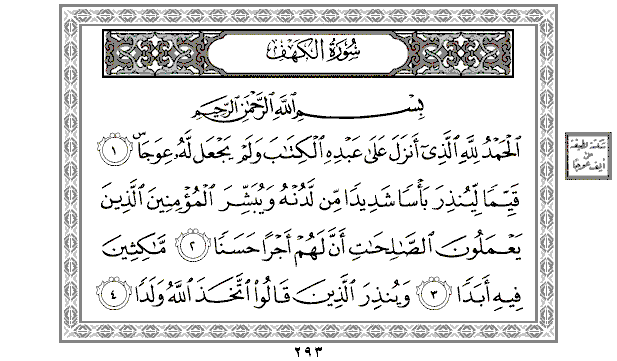 سُورَةُ الكَهْفِ
بِسْمِ اللَّهِ الرَّحْمَٰنِ الرَّحِيمِ
الْحَمْدُ لِلَّهِ الَّذِي أَنزَلَ عَلَىٰ عَبْدِهِ الْكِتَابَ وَلَمْ يَجْعَل لَّهُ عِوَجًا ۜ ١
قَيِّمًا لِّيُنذِرَ بَأْسًا شَدِيدًا مِّن لَّدُنْهُ وَيُبَشِّرَ الْمُؤْمِنِينَ الَّذِينَ
يَعْمَلُونَ الصَّالِحَاتِ أَنَّ لَهُمْ أَجْرًا حَسَنًا ٢ مَّاكِثِينَ
فِيهِ أَبَدًا ٣ وَيُنذِرَ الَّذِينَ قَالُوا اتَّخَذَ اللَّهُ وَلَدًا ٤
سكتة لطيفة
على
ألف عوجا
٢٩٣